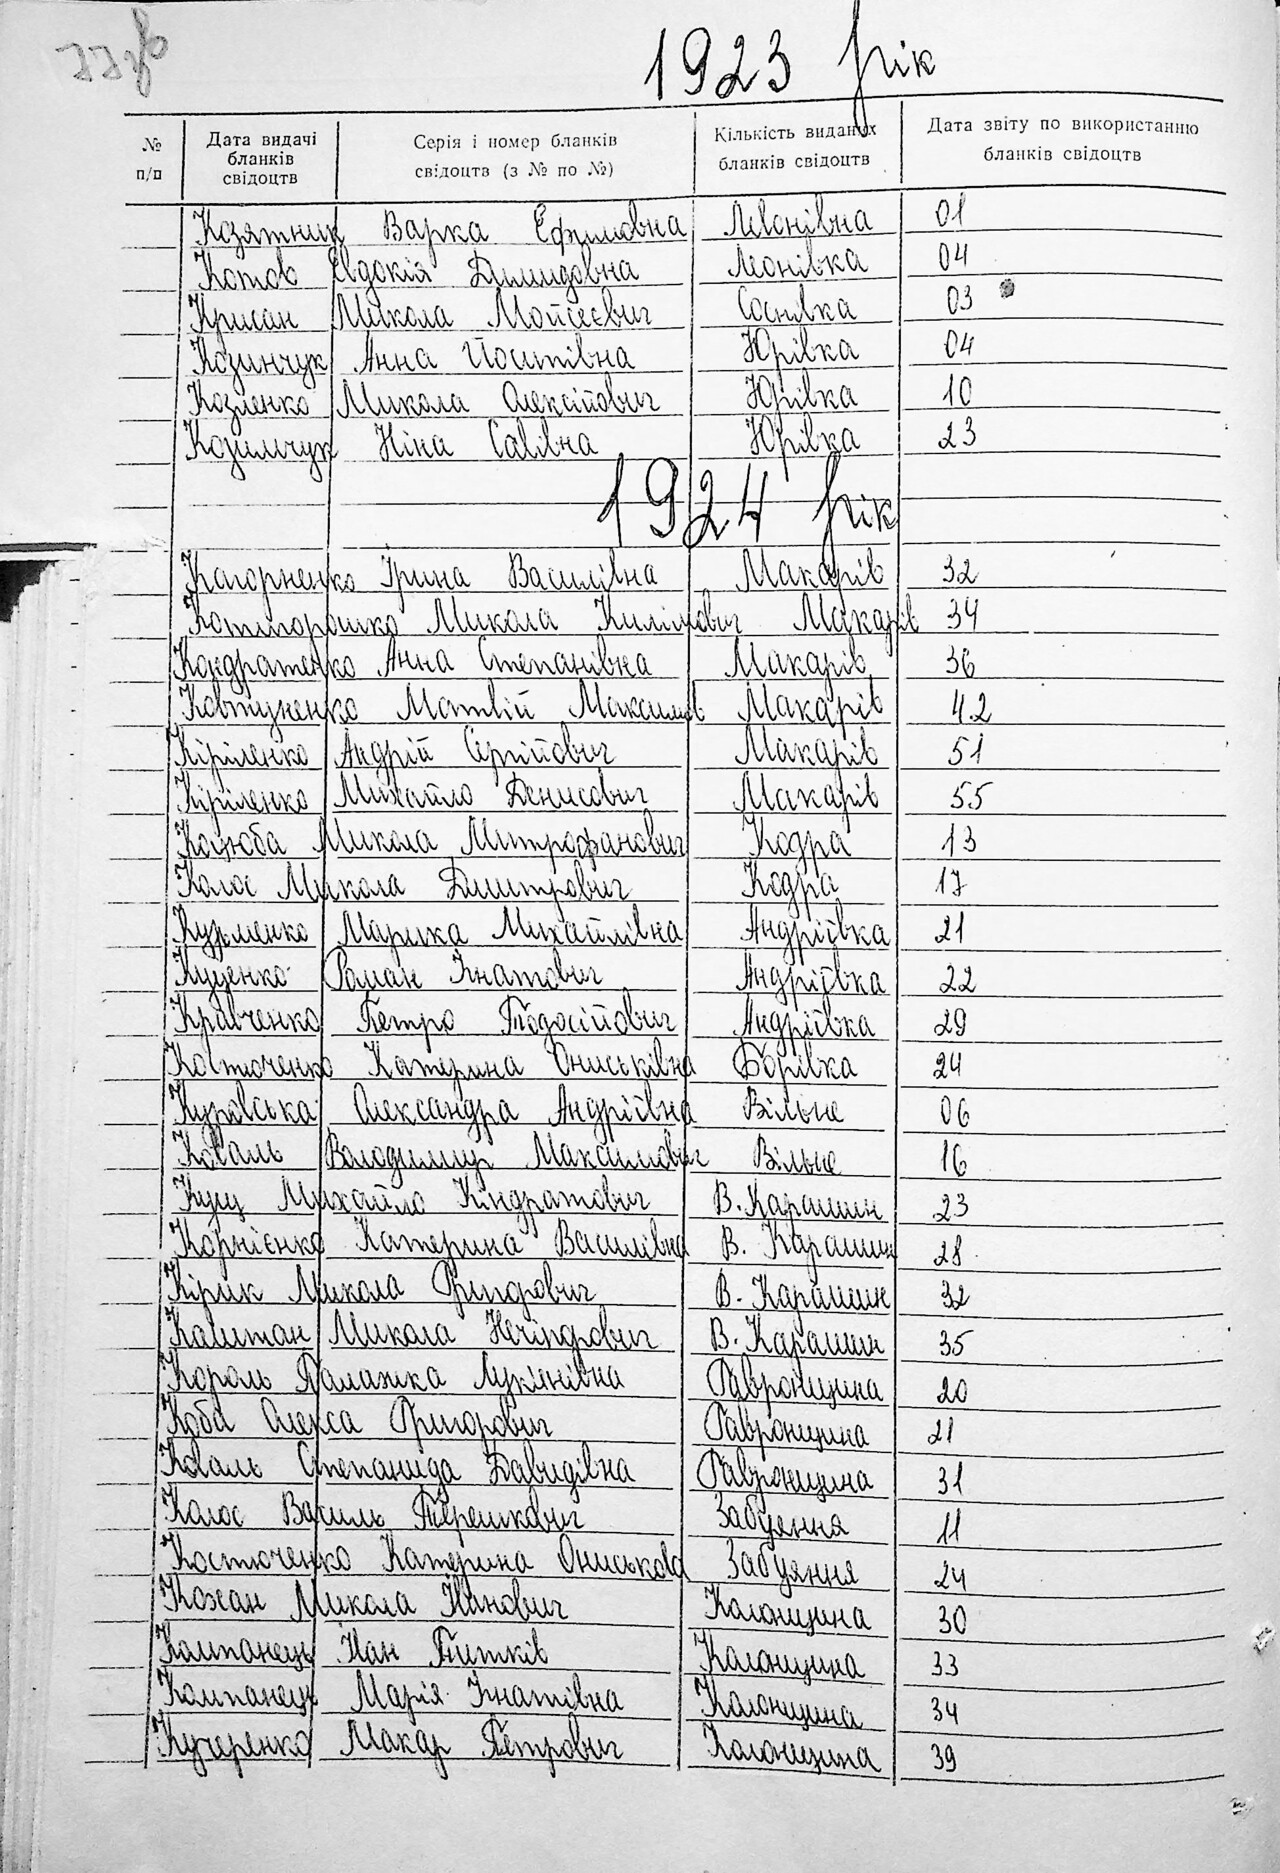 1923 рік
№ п/п
Дата видачі бланків свідоцтв
Серія і номер бланків свідоцтв (з № по №)
Кількість виданих бланків свідоцтв
Дата звіту по використанню бланків свідоцтв
Козятник Варка Єфимовна Левонівна 01
Котов Евдокія Димидовна Леонівка 04
Крисан Микола Мойсеєвич Соснівка 03
Козинчук Анна Йосипівна Юрівка 04
Козленко Микола Олексійович Юрівка 10
Козимчук Ніна Савівна Юрівка 23
1924 рік
Кагорненко Ірина Василівна Макарів 32
Котигорошко Микола Килимович Макарів 34
Кондратенко Анна Степанівна Макарів 36
Ковтуненко Матвій Максимов Макарів 42
Кіріленко Андрій Сергійович Макарів 51
Кіріленко Михайло Денисович Макарів 55
Коцюба Микола Митрофанович Кодра 13
Колос Микола Дмитрович Кодра 17
Кузьменко Марика Михайлівна Андріївка 21
Куценко Роман Ігнатович Андріївка 22
Кравченко Петро Тодосійович Андріївка 29
Костюченко Катерина Ониськівна Борівка 24
Куровська Олександра Андріївна Вільне 06
Коваль Володимир Максимович Вільне 16
Куц Михайло Кіндратович В. Карашин 23
Корнієнко Катерина Василівна В. Карашин 28
Кірик Микола Григорович В. Карашин 32
Каштан Микола Нечіпорович В. Карашин 35
Король Паламка Лукінівна Гавронщина 20
Коба Олекса Григорович Гавронщина 21
Коваль Степанида Давидівна Гавронщина 31
Колос Василь Терешкович Забуяння 11
Костюченко Катерина Ониськова Забуяння 24
Кожан Микола Іванович Колонщина 30
Компанець Іван Титків Колонщина 33
Компанець Марія Ігнатівна Колонщина 34
Кучеренко Макар Петрович Колонщина 39